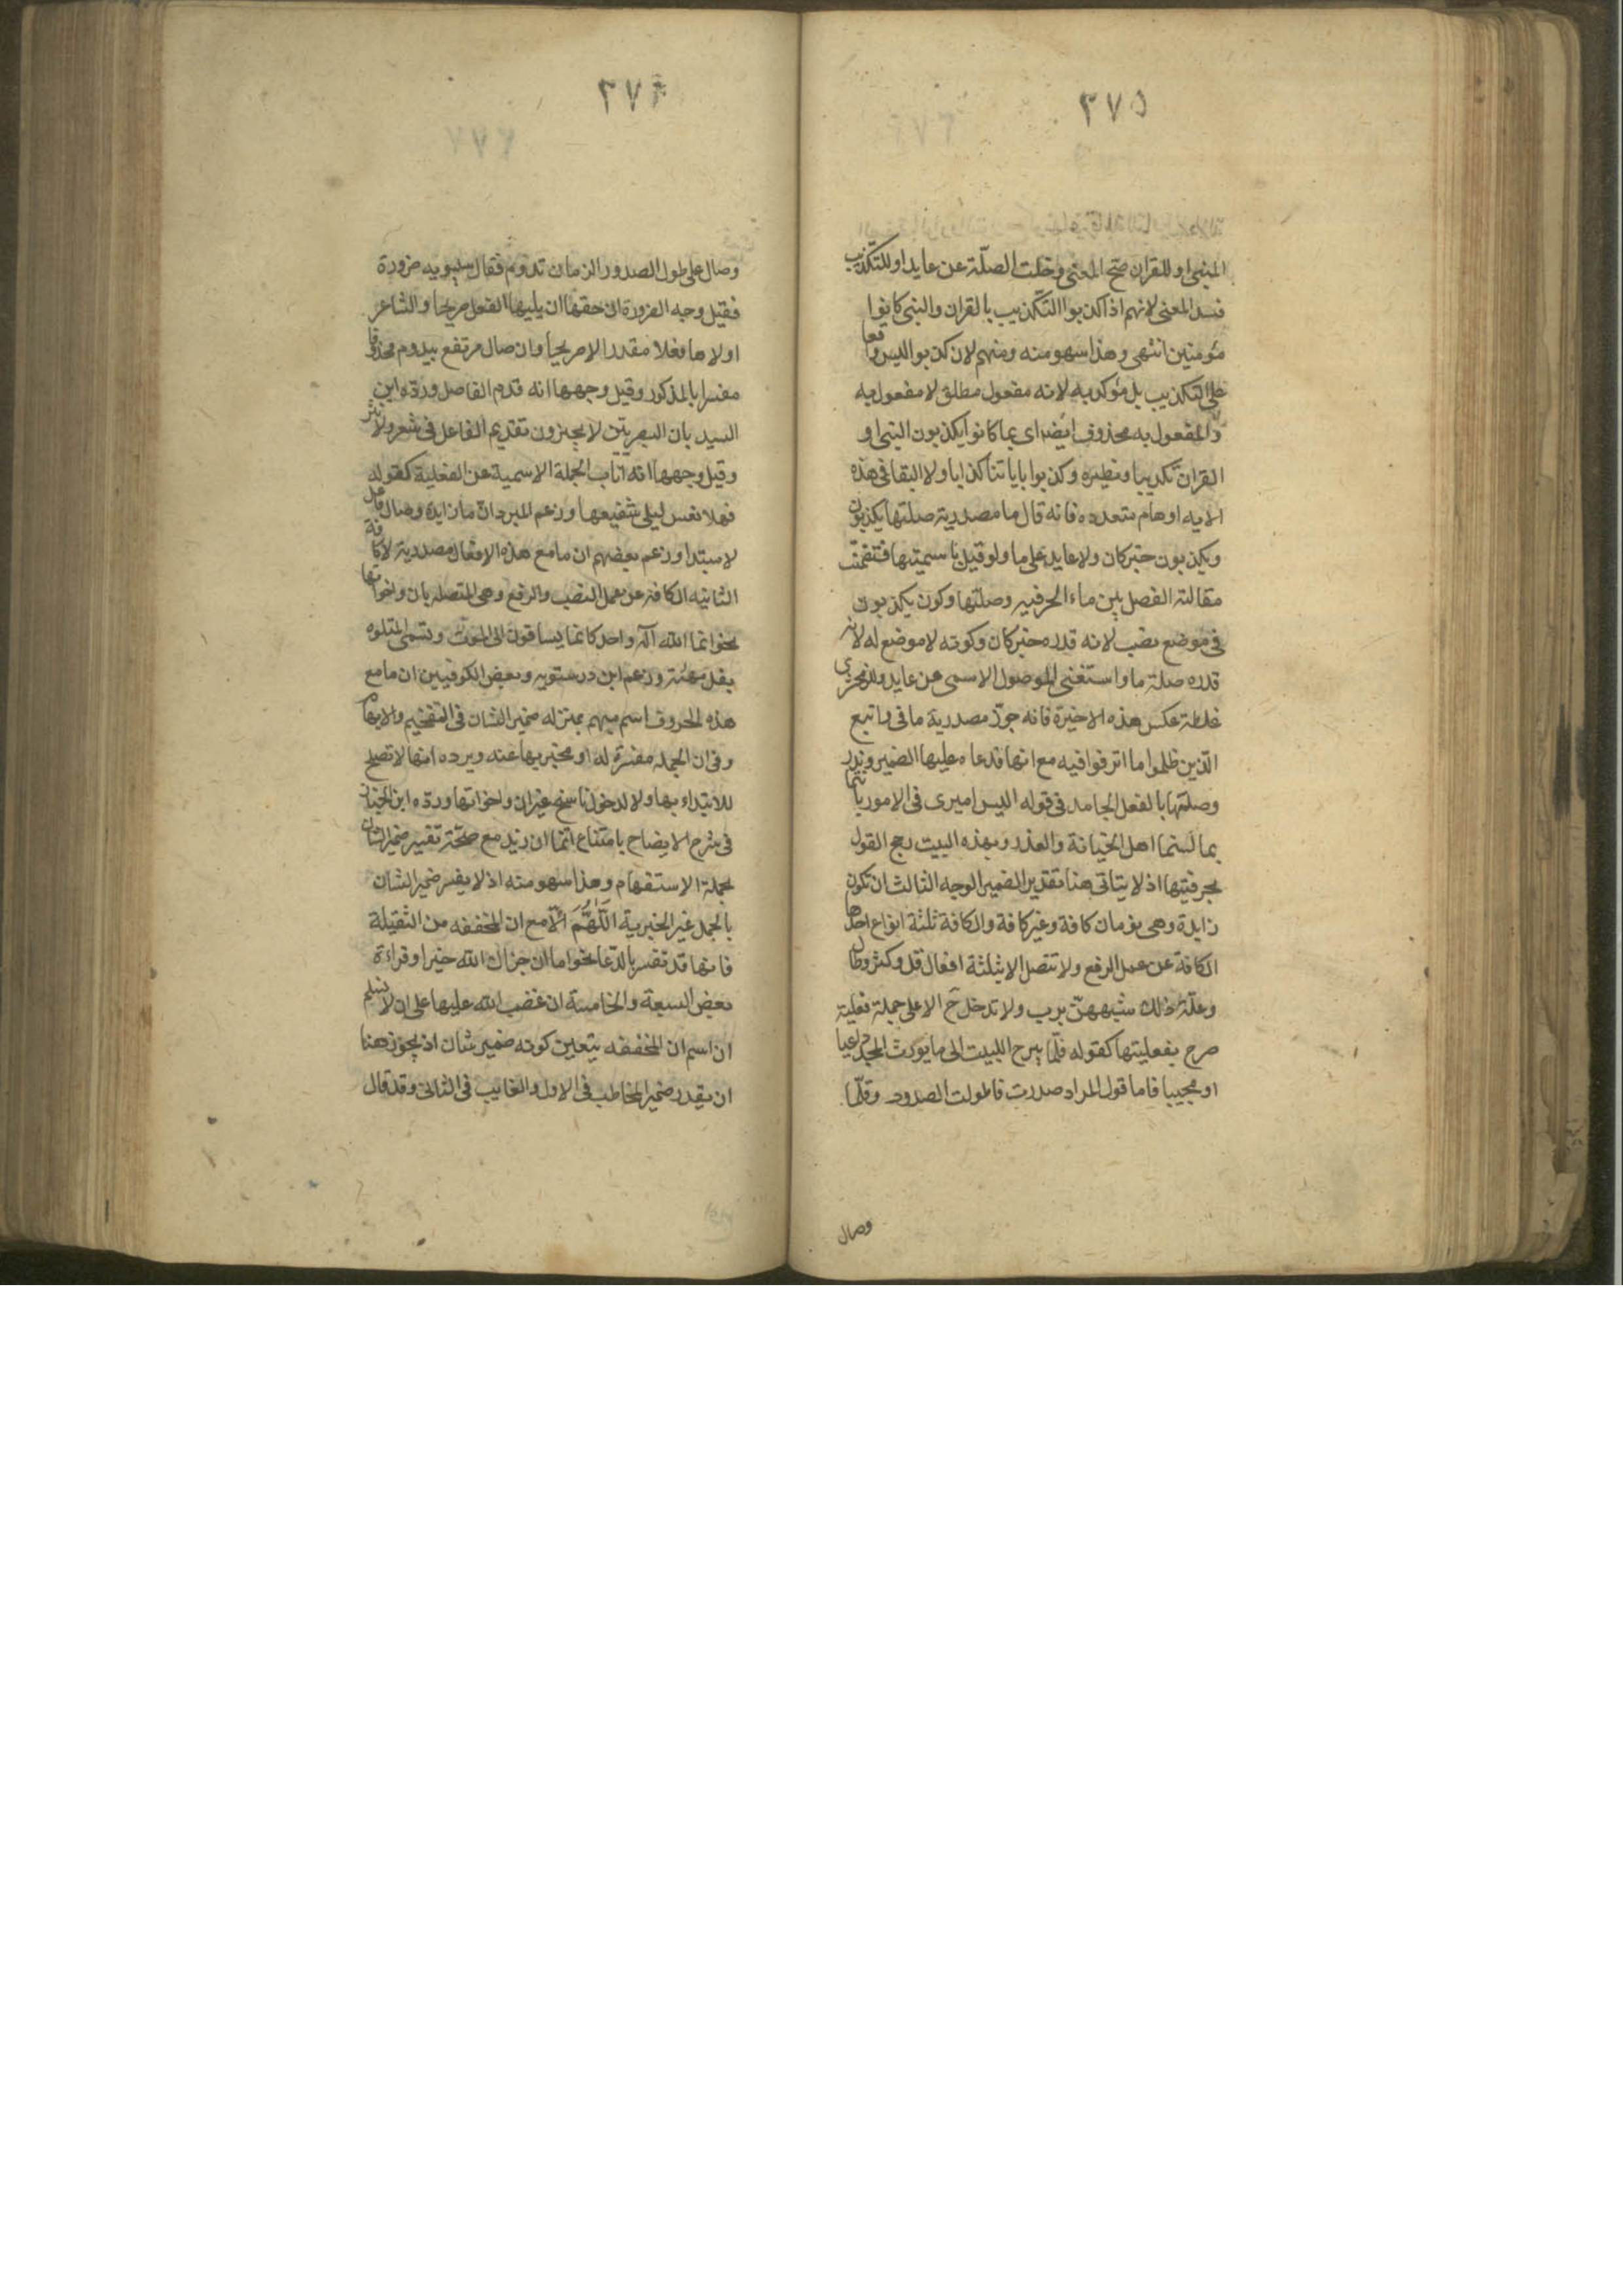 ٢٧٥
المنبى او للقران صح المعنى وخلت الصلة عن عايد او للتكذيب
فسد المعنى لانهم اذا كذبوا التكذيب بالقران والنبى كانوا
مؤمنين انتهى وهذا سهو منه ومنهم لان كذبوا ليس واقعا
على التكذيب بل مؤكد به لانه مفعول مطلق لا مفعول به
والمفعول به محذوف ايضا اى بما كانوا يكذبون النبى او
القران تكذيبا ونظيره وكذبوا باياتنا كذابا ولابى البقا فى هذه
الايه اوهام متعدده فانه قال ما مصدرية صلتها يكذبون
ويكذبون خبر كان ولا عايد على ما ولو قيل باسميتها فتضمنت
مقالته الفصل بين ماء الحرفيه وصلتها وكون يكذبون
فى موضع نصب لانه قدره خبر كان وكونه لا موضع له لانه
قدره صلة ما واستغنى الموصول الاسمى عن عايد وللزمخشرى
غلطة عكس هذه الاخيرة فانه جوز مصدرية ما فى واتبع
الذين ظلموا ما اترفوا فيه مع انها قد عاد عليها الضمير وندر
وصلتها بالفعل الجامد فى قوله اليس اميرى فى الامور بانتما
بما لستما اهل الخيانة والغدر وبهذه البيت رجح القول
بحرفيتها اذ لا يتاتى هنا تقدير الضمير الوجه الثالث ان تكون
زايدة وهى نوعان كافة وغير كافة والكافة ثلثة انواع احدها
الكافة عن عمل الرفع ولا تتصل الا بثلثة افعال قل وكثر وطال
وعلة ذلك شبههن برب ولا تدخل ح الا على جملة فعلية
صرح بفعليتها كقوله قلما يبرح اللبيب الى ما يورث المجد داعيا
او مجيبا فاما قول المراد صددت فاطولت الصدود وقلما
وصال
٢٧٦
وصال على طول الصدود الزمان تدوم فقال سيبويه ضرورة
فقيل وجه الضرورة ان حقها ان يليها الفعل صريحا والشاعر
اولاها فعلا مقدرا لا صريحا وان صال مرتفع بيدوم محذوفا
مفسرا بالمذكور وقيل وجهها انه قدم الفاصل ورده ابن
السيد بان البصريين لا يجيزون تقديم الفاعل فى شعر ولا نثر
وقيل وجهها انه اناب الجملة الاسمية عن الفعلية كقوله
فهلا نفس ليلى شفيعها وزعم المبرد ان ما زايدة وصال فاعل
لا مبتدا وزعم بعضهم ان ما مع هذه الافعال مصدرية لا كافة
الثانيه الكافة عن عمل النصب والرفع وهى المتصله بان واخواتها
نحو انما الله اله واحد كانما يساقون الى الموت وتسمى المتلوه
بفعل مهيئة وزعم ابن درستويه وبعض الكوفيين ان ما مع
هذه الحروف اسم مبهم بمنزله ضمير الشان فى التفخيم والابهام
وفى ان الجمله مفسرة له او مخبر بها عنه ويرده انها لا تصلح
للابتداء بها ولا لدخول ناسخ غير ان واخواتها ورده ابن الخباز
فى شرح الايضاح بامتناع انما اين زيد مع صحة تفسير ضمير الشان
بجملة الاستفهام وهذا سهو منه اذ لا يفسر ضمير الشان
بالجمل غير الخبرية اللهم الا مع ان المخففه من الثقيلة
فانها قد تفسر بالدعا نحو اما ان جزاك الله خيرا وقراءة
بعض السبعة والخامسة ان غضب الله عليها على انا لا نسلم
ان اسم ان المخففه يتعين كونه ضمير شان اذ يجوز هنا
ان يقدر ضمير المخاطب فى الاول والغايب فى الثانى وقد قال